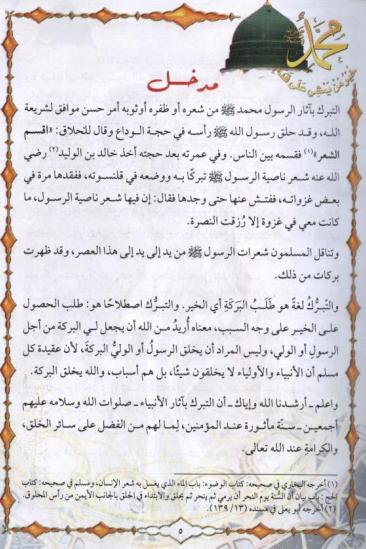 محمد ﷺ
خير من يمشي على قدم
مدخل
التبرك بآثار الرسول محمد ﷺ من شعره أو ظفره أوثوبه أمر حسن موافق لشريعة
الله، وقد حلق رسول الله ﷺ رأسه في حجة الوداع وقال للحلاق: «اقسم
الشعر»(١) فقسمه بين الناس. وفي عمرته بعد حجته أخذ خالد بن الوليد(٢) رضي
الله عنه شعر ناصية الرسول ﷺ تبركًا به ووضعه في قلنسوته، ففقدها مرة في
بعض غزواته، ففتش عنها حتى وجدها فقال: إن فيها شعر ناصية الرسول، ما
كانت معي في غزوة إلا رُزقت النصرة.
وتناقل المسلمون شعرات الرسول ﷺ من يد إلى يد إلى هذا العصر، وقد ظهرت
بركات من ذلك.
والتبرُّك لغةً هو طَلَبُ البَرَكَةِ أي الخير. والتبرُّك اصطلاحًا هو: طلب الحصول
على الخير على وجه السبب، معناه أُريدُ من الله أن يجعل لي البركة من أجل
الرسول أو الولي، وليس المراد أن يخلق الرسولُ أو الوليُّ البركةَ، لأن عقيدة كل
مسلم أن الأنبياء والأولياء لا يخلقون شيئًا، بل هم أسباب، والله يخلق البركة.
واعلم ـ أرشدنا الله وإياك ـ أن التبرك بآثار الأنبياء ـ صلوات الله وسلامه عليهم
أجمعين ـ سنة مأثورة عند المؤمنين، لِما لهم من الفضل على سائر الخلق،
والكرامةِ عند الله تعالى.
(١) أخرجه البخاري في صحيحه: كتاب الوضوء: باب الماء الذي يغسل به شعر الإنسان، ومسلم في صحيحه: كتاب
الحج: باب بيان أن السُّنة يوم النحر أن يرمي ثم ينحر ثم يحلق والابتداء في الحلق بالجانب الأيمن من رأس المحلوق.
(٢) أخرجه أبو يعلى في مسنده (١٣/ ١٣٩)
٥